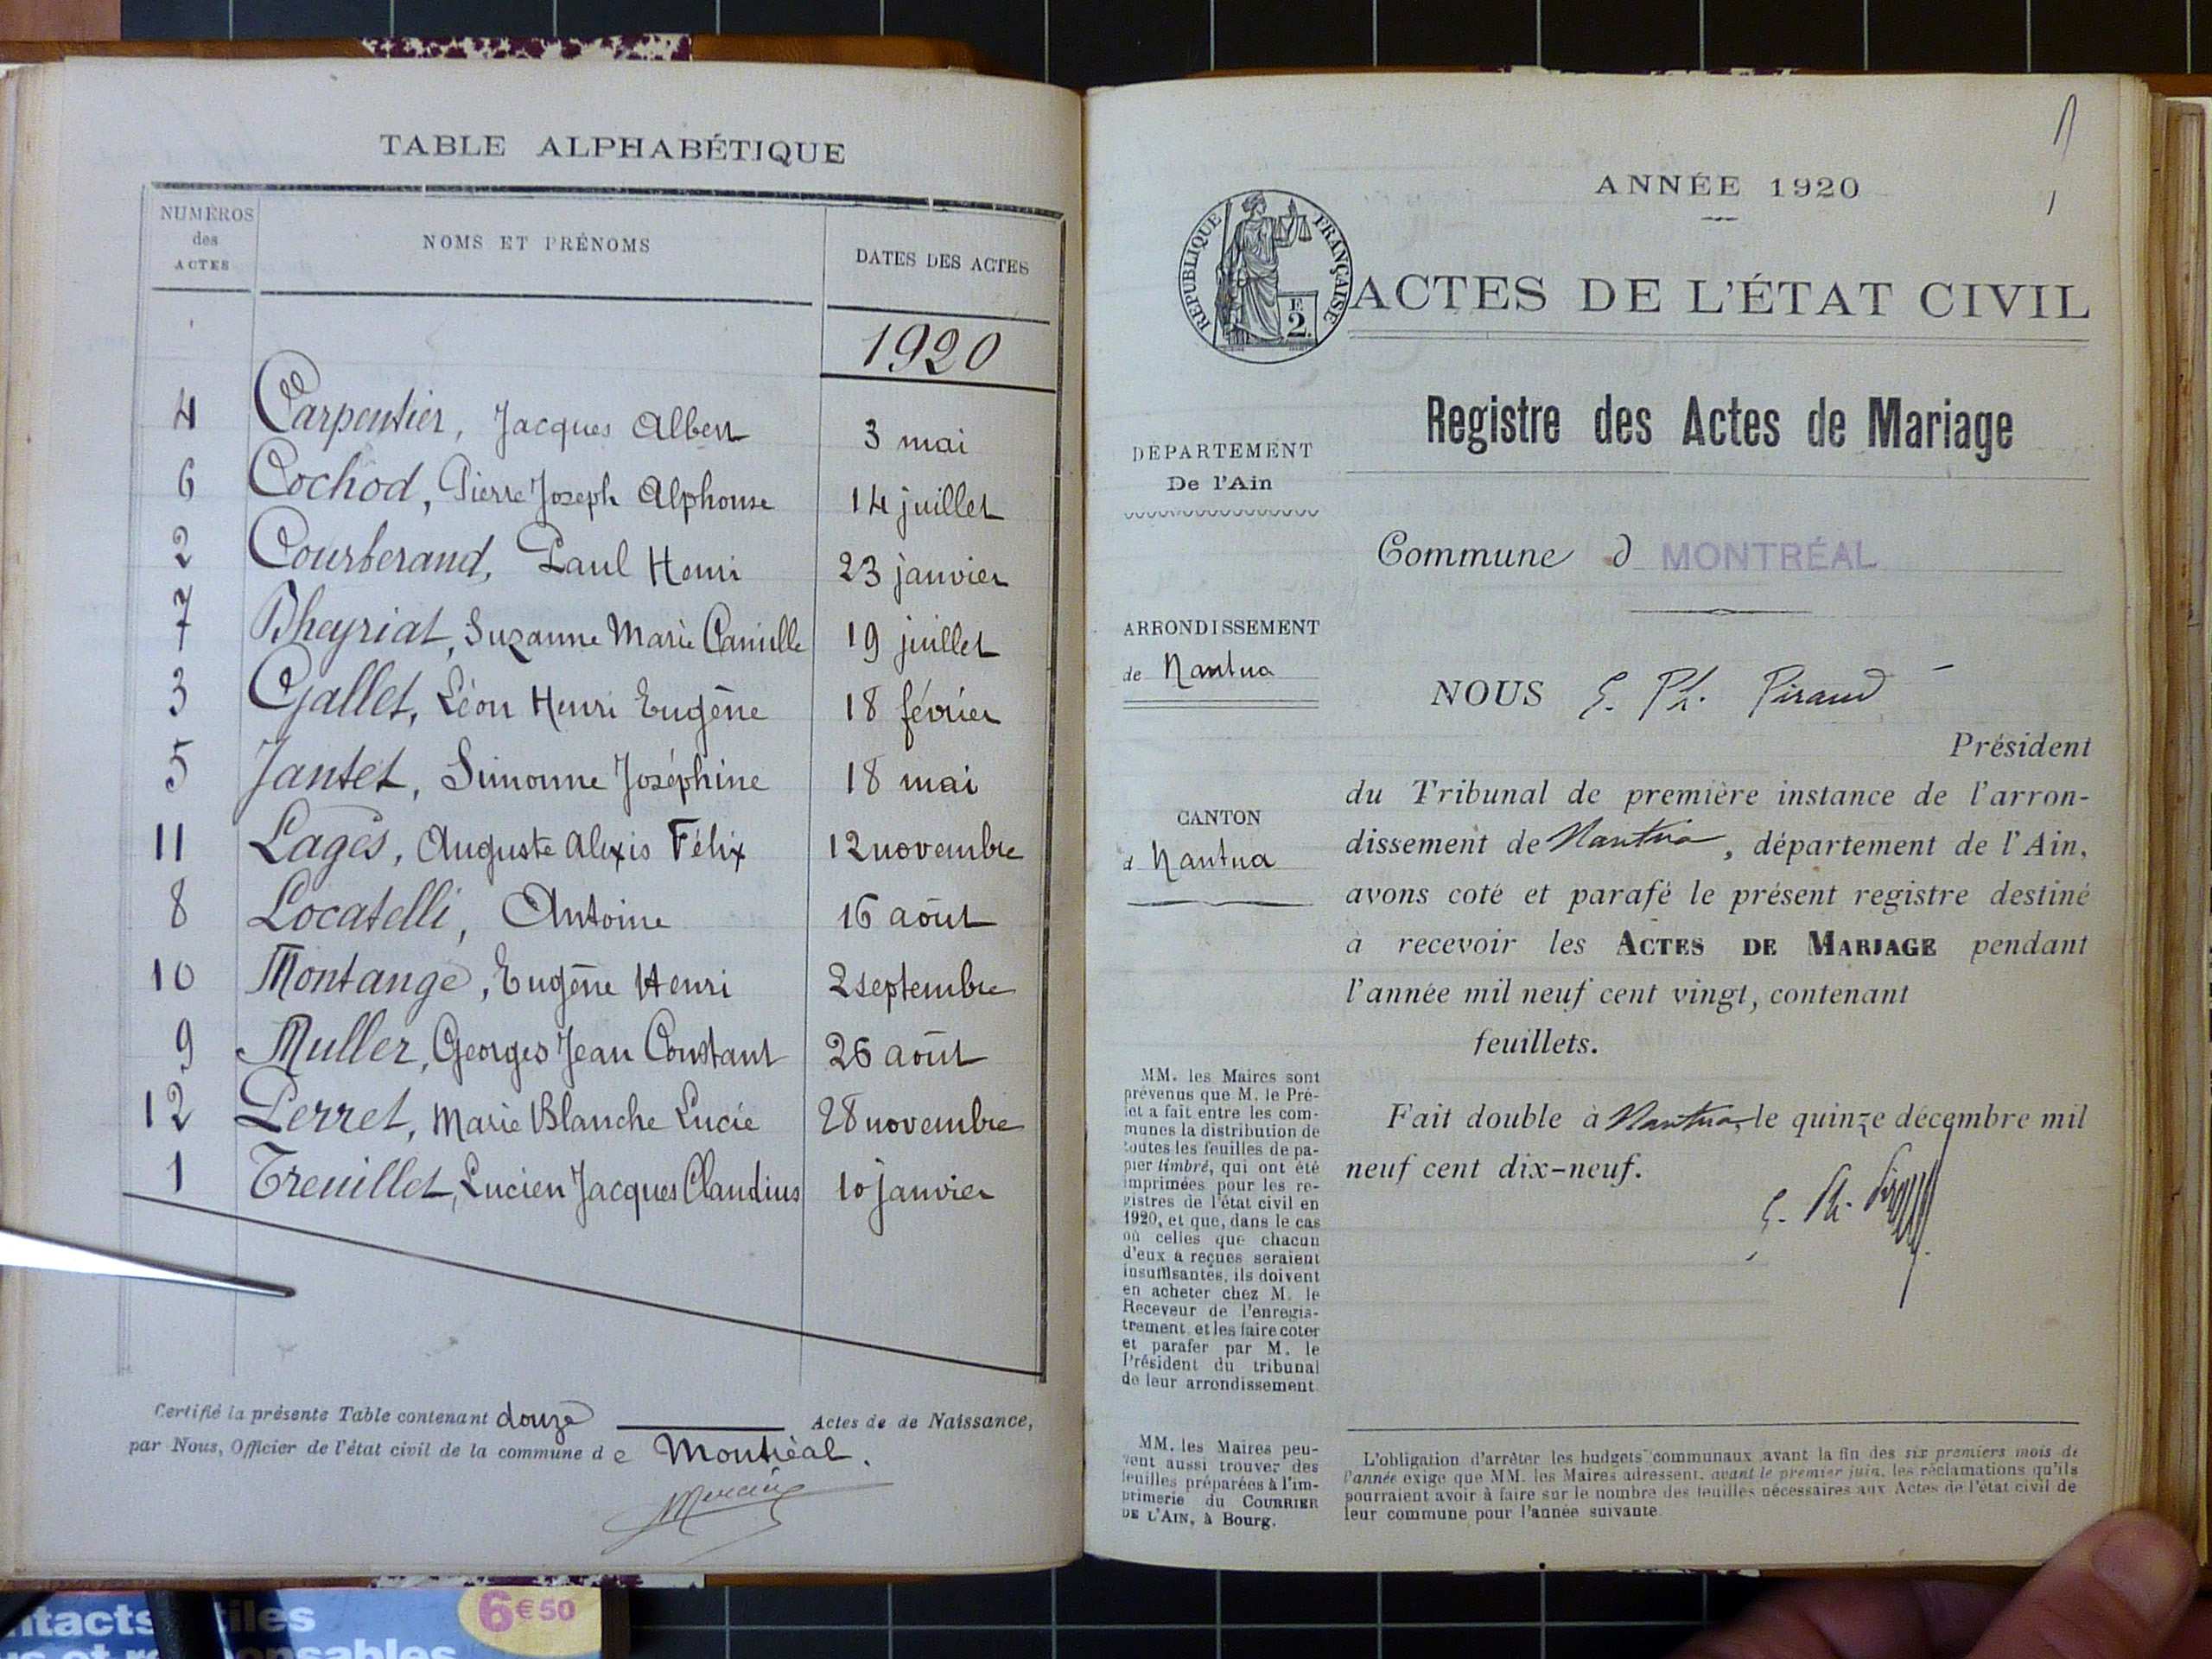 TABLE ALPHABÉTIQUE
NUMÉROS
des
ACTES
NOMS ET PRÉNOMS
DATES DES ACTES
1920
4 Carpentier, Jacques Albert 3 mai
6 Cochod, Pierre Joseph Alphonse 14 juillet
2 Courberand, Paul Henri 23 janvier
7 Dheyriat, Suzanne Marie Camille 19 juillet
3 Gallet, Léon Henri Eugène 18 février
5 Jantet, Simonne Joséphine 18 mai
11 Lagès, Auguste Alexis Félix 12 novembre
8 Locatelli, Antoine 16 août
10 Montange, Eugène Henri 2 septembre
9 Muller, Georges Jean Constant 26 août
12 Perret, Marie Blanche Lucie 28 novembre
1 Treuillet, Lucien Jacques Claudius 10 janvier
Certifié la présente Table contenant douze Actes de de Naissance,
par Nous, Officier de l'état civil de la commune de Montréal.
ANNÉE 1920
RÉPUBLIQUE FRANÇAISE
E
2.
ACTES DE L'ÉTAT CIVIL
Registre des Actes de Mariage
DÉPARTEMENT
De l'Ain
Commune d MONTRÉAL
ARRONDISSEMENT
de Nantua
CANTON
d Nantua
NOUS G. Ph. Piraud
Président
du Tribunal de première instance de l'arron-
dissement de Nantua, département de l'Ain,
avons coté et parafé le présent registre destiné
à recevoir les ACTES DE MARIAGE pendant
l'année mil neuf cent vingt, contenant
feuillets.
Fait double à Nantua, le quinze décembre mil
neuf cent dix-neuf.
MM. les Maires sont
prévenus que M. le Pré-
fet a fait entre les com-
munes la distribution de
toutes les feuilles de pa-
pier timbré, qui ont été
imprimées pour les re-
gistres de l'état civil en
1920, et que, dans le cas
où celles que chacun
d'eux a reçues seraient
insuffisantes, ils doivent
en acheter chez M. le
Receveur de l'enregis-
trement et les faire coter
et parafer par M. le
Président du tribunal
de leur arrondissement.
MM. les Maires peu-
vent aussi trouver des
feuilles préparées à l'im-
primerie du COURRIER
DE L'AIN, à Bourg.
L'obligation d'arrêter les budgets communaux avant la fin des six premiers mois de
l'année exige que MM. les Maires adressent, avant le premier juin, les réclamations qu'ils
pourraient avoir à faire sur le nombre des feuilles nécessaires aux Actes de l'état civil de
leur commune pour l'année suivante.
6€50